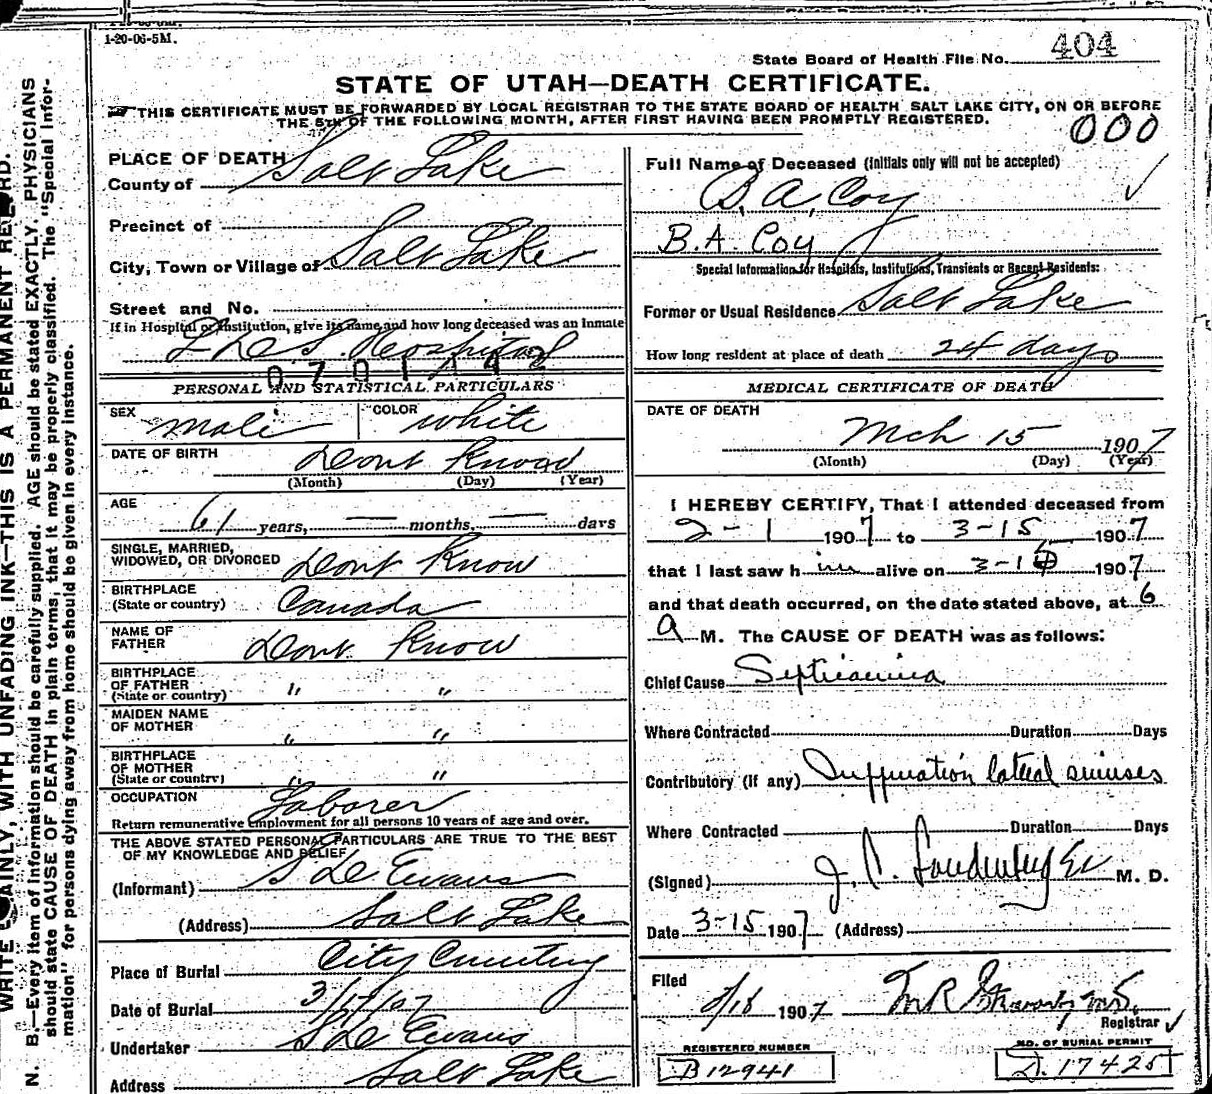 1-20-06-5M.
State Board of Health File No. 404
STATE OF UTAH—DEATH CERTIFICATE.
THIS CERTIFICATE MUST BE FORWARDED BY LOCAL REGISTRAR TO THE STATE BOARD OF HEALTH SALT LAKE CITY, ON OR BEFORE
THE 5TH OF THE FOLLOWING MONTH, AFTER FIRST HAVING BEEN PROMPTLY REGISTERED.
000
WRITE PLAINLY, WITH UNFADING INK—THIS IS A PERMANENT RECORD.
N. B.—Every item of information should be carefully supplied. AGE should be stated EXACTLY. PHYSICIANS
should state CAUSE OF DEATH in plain terms, that it may be properly classified. The "Special Infor-
mation" for persons dying away from home should be given in every instance.
PLACE OF DEATH
County of Salt Lake
Precinct of
City, Town or Village of Salt Lake
Street and No.
If in Hospital or Institution, give its name and how long deceased was an Inmate
L D S. Hospital
PERSONAL AND STATISTICAL PARTICULARS
SEX male COLOR white
DATE OF BIRTH Dont Know
(Month) (Day) (Year)
AGE
61 years, — months, — days
SINGLE, MARRIED,
WIDOWED, OR DIVORCED Dont Know
BIRTHPLACE
(State or country) Canada
NAME OF
FATHER Dont Know
BIRTHPLACE
OF FATHER
(State or country) " "
MAIDEN NAME
OF MOTHER " "
BIRTHPLACE
OF MOTHER
(State or country) " "
OCCUPATION Laborer
Return remunerative employment for all persons 10 years of age and over.
THE ABOVE STATED PERSONAL PARTICULARS ARE TRUE TO THE BEST
OF MY KNOWLEDGE AND BELIEF
(Informant) S D Evans
(Address) Salt Lake
Place of Burial City Cemetery
Date of Burial 3/17/07
Undertaker S D Evans
Address Salt Lake
Full Name of Deceased (Initials only will not be accepted)
B. A. Coy
B.A. Coy
Special Information for Hospitals, Institutions, Transients or Recent Residents:
Former or Usual Residence Salt Lake
How long resident at place of death 24 days
MEDICAL CERTIFICATE OF DEATH
DATE OF DEATH
Mch 15 1907
(Month) (Day) (Year)
I HEREBY CERTIFY, That I attended deceased from
2-1 1907 to 3-15 1907
that I last saw him alive on 3-15 1907
and that death occurred, on the date stated above, at 6
a M. The CAUSE OF DEATH was as follows:
Chief Cause Septicaemia
Where Contracted Duration Days
Contributory (if any) Suppuration lateral sinuses
Where Contracted Duration Days
(Signed) J. C. M. D.
Date 3-15 1907 (Address)
Filed
1907
Registrar
REGISTERED NUMBER
B 12941
NO. OF BURIAL PERMIT
D. 17425